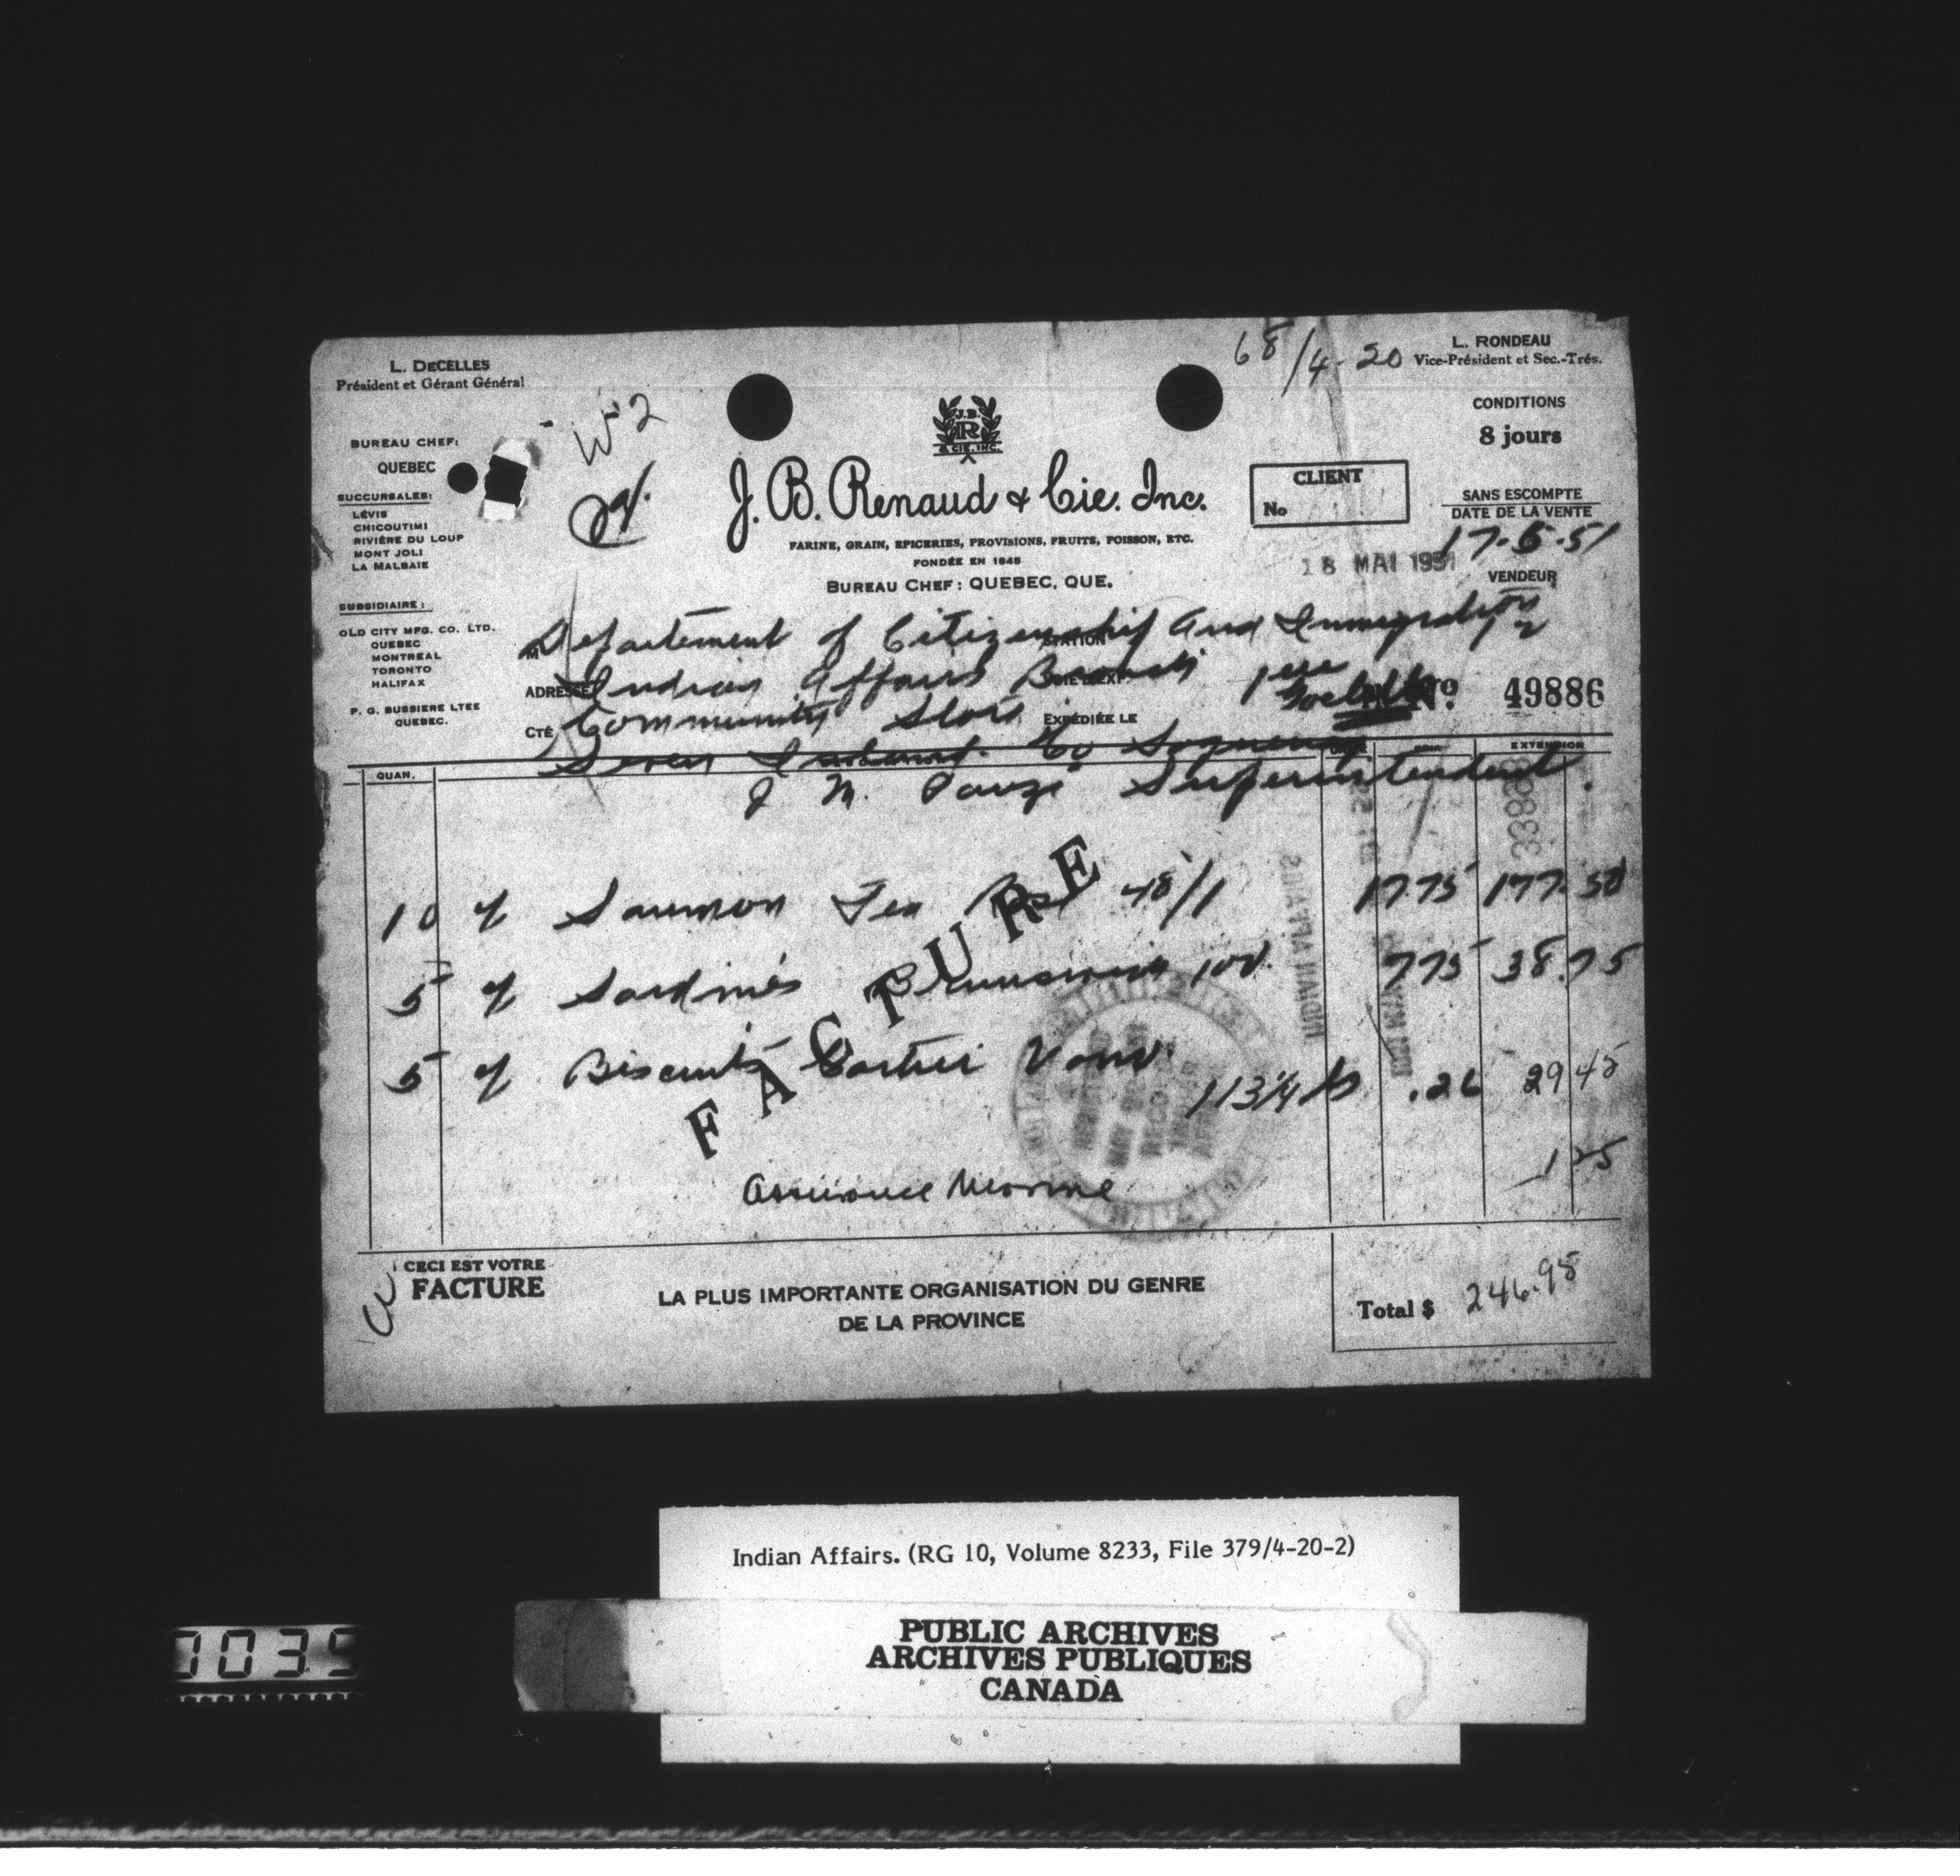 68/4-20
L. DECELLES
Président et Gérant Général
L. RONDEAU
Vice-Président et Sec.-Trés.
W-2
CONDITIONS
8 jours
BUREAU CHEF:
QUEBEC
J.B.
R
& CIE. INC.
J. B. Renaud & Cie. Inc.
CLIENT
No
SUCCURSALES:
LÉVIS
CHICOUTIMI
RIVIÈRE DU LOUP
MONT JOLI
LA MALBAIE
SANS ESCOMPTE
DATE DE LA VENTE
17-5-51
FARINE, GRAIN, EPICERIES, PROVISIONS, FRUITS, POISSON, ETC.
FONDÉE EN 1845
BUREAU CHEF: QUEBEC, QUE.
18 MAI 1951
VENDEUR
SUBSIDIAIRE:
OLD CITY MFG. CO. LTD.
QUEBEC
MONTREAL
TORONTO
HALIFAX
P. G. BUSSIERE LTEE
QUEBEC.
M Departement of Citizenship and Immigration
STATION
ADRESSE Indian Affairs Branch
No 49886
CTÉ Community Store
EXPÉDIÉE LE
Seven Islands. Co Saguenay
QUAN.
EXTENSION
J M. Pauzé Superintendent.
10 Saumon 48/1 17.75 177.50
5 Sardines Brunswick 100. 775 38.75
5 Biscuits 113 1/4 lb .26 29 45
Assurance Marine 1 25
FACTURE
INDIAN AFFAIRS
CECI EST VOTRE
FACTURE
LA PLUS IMPORTANTE ORGANISATION DU GENRE
DE LA PROVINCE
Total $ 246.95
Indian Affairs. (RG 10, Volume 8233, File 379/4-20-2)
PUBLIC ARCHIVES
ARCHIVES PUBLIQUES
CANADA